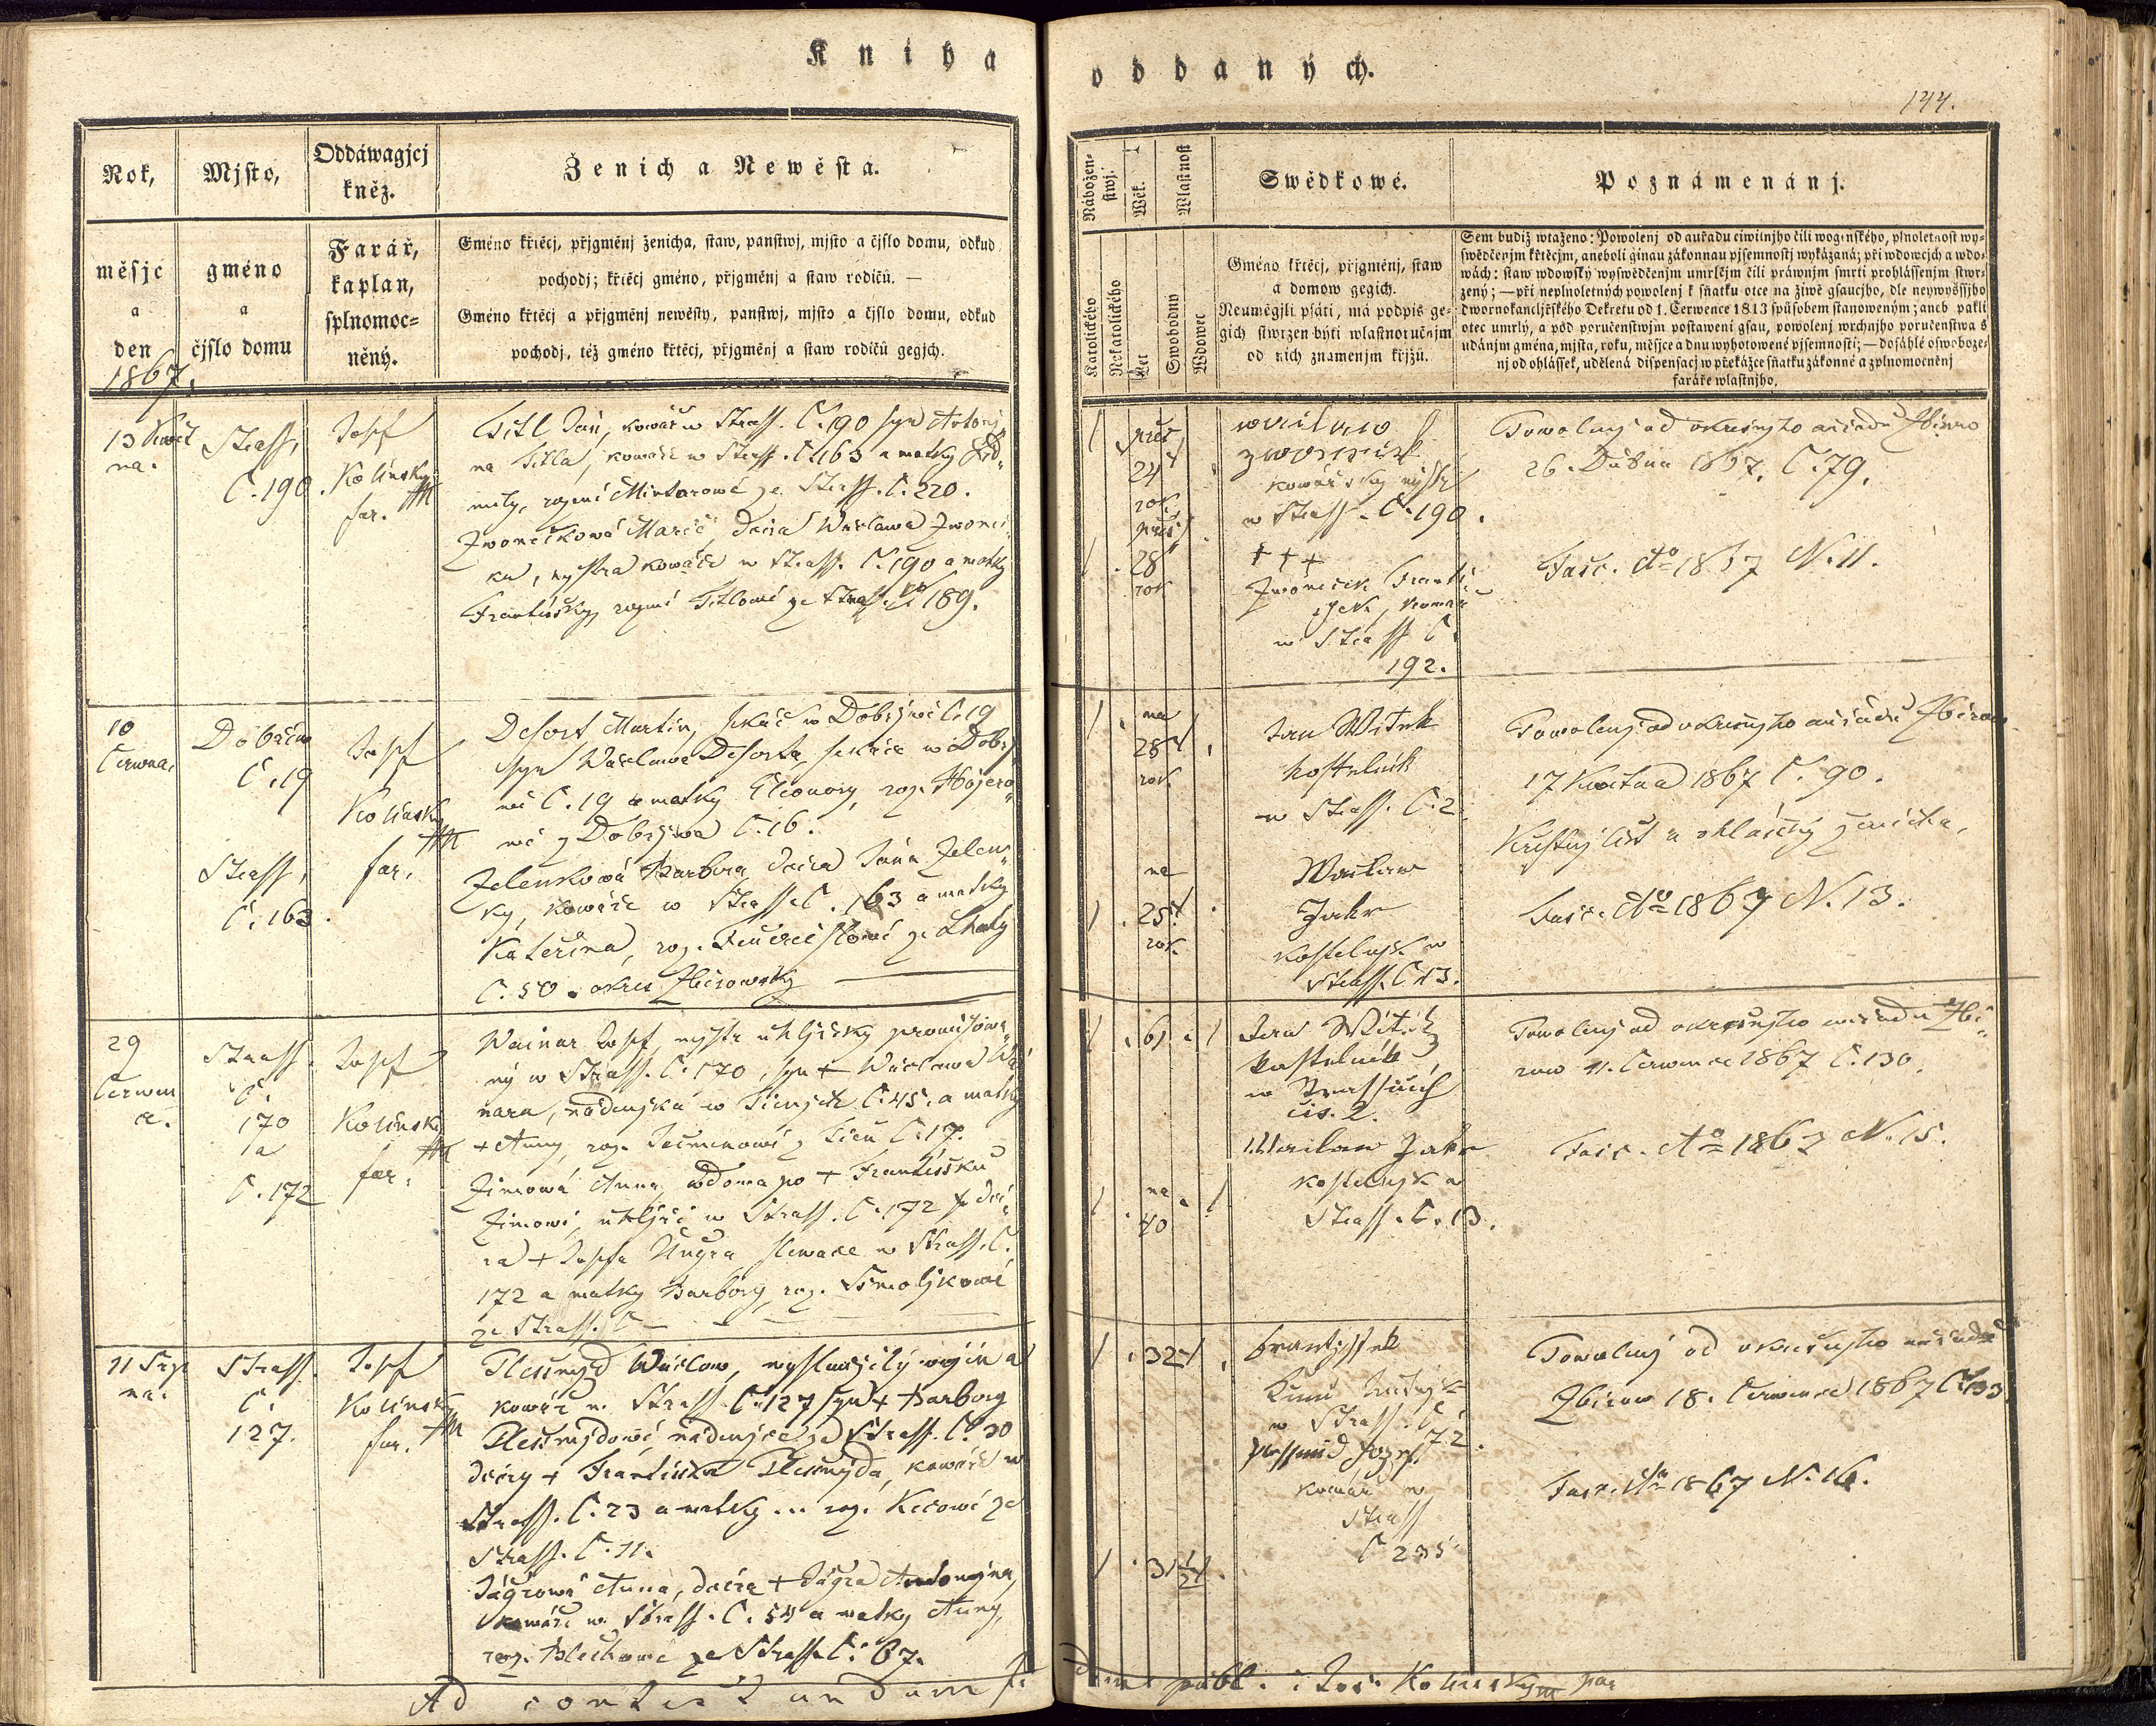 Kniha oddaných.
144.
Rok,
měsjc
a
den
1867.
Mjsto,
gméno
a
čjslo domu
Oddáwagjcj
kněz.
Farář,
kaplan,
splnomoc=
něný.
Ženich a Newěsta.
Gméno křtěcj, přjgměnj ženicha, staw, panstwj, mjsto a čjslo domu, odkud
pochodj; křtěcj gméno, přjgměnj a staw rodičů. —
Gméno křtěcj a přjgměnj newěsty, panstwj, mjsto a čjslo domu, odkud
pochodj, též gméno křtěcj, přjgměnj a staw rodičů gegjch.
Nábožen=
stwj.
Katolického
Nekatolického
Wěk.
Let
Wlastnost
Swobodny
Wdowec
Swědkowé.
Gméno křtěcj, přjgměnj, staw
a domow gegich.
Neumégjli psáti, má podpis ge=
gich stwrzen býti wlastnoručnjm
od nich znamenjm křjžů.
Poznámenánj.
Sem budiž wtaženo: Powolenj od auřadu ciwilnjho čili wogenského, plnoletnost wy=
swědčenjm křtěcjm, aneboli ginau zákonnau pjsemnostj wykázaná; při wdowcjch a wdo=
wách: staw wdowský wyswědčenjm umrlčjm čili práwnjm smrti prohlássenjm stwr=
zený; — při neplnoletných powolenj k sňatku otce na žiwě gsaucjho, dle neywyššjho
dwornokanclјřského Dekretu od 1. Čerwence 1813 spůsobem stanoweným; aneb pakli
otec umrlý, a pod poručenstwjm postaweni gsau, powolenj wrchnjho poručenstwa s
udánjm gména, mjsta, roku, měsjce a dnu wyhotowené pjsemnosti; — dosáhlé oswoboze=
nj od ohlássek, udělená dispensacj w překážce sňatku zákonné a zplnomocněnj
faráře wlastnjho.
13 Květ
na.
Strass.
C. 190.
Josef
Kolínský
far.
Titl Jan, kowář w Strass. C. 190 syn Antoni
na Titla, kowáře w Strass. C. 163 a matky Lid=
mily, rozené ze Strass. C. 220.
Zworníčková Marie, dcera Wáclawa Zworníč=
ka, mystra kowáře w Strass. C. 190 a matky
Františky, rozené Titlowé ze Strass. C. 189.
24
rok
28
rok
kowářský mystr
w Strass. C. 190.
+++
František, kowář
w Strass. C.
192.
Powolenj od okresnjho auřadu Zbirow
26. Dubna 1867. C. 79.
Fasc. Ao 1867 N. 11.
10
Cerwna.
Dobřiw
C. 19
Strass.
C. 163.
Josef
Kolínský
far.
Desort Martin, sekáč w Dobřjwě C. 19
syn Wáclawa Desorta, sekáče w Dobřj
wě C. 19 a matky Eleonory, roz. Hájero=
wé z Dobřjwa C. 16.
Zelenková Barbora, dcera Jána Zelen=
ky, kowáře w Strass. C. 163 a matky
Kateřina, roz. ze Lhoty
C. 50. okres Zbirowský
na
28
rok
na
25
rok
Jan Witek
kostelník
w Strass. C. 2
Waclaw
Jakr
kostelnjk w
Strass. C. 13.
Powolenj od okresnjho auřadu Zbirow
17 Kwětna 1867 C. 90.
Křestnj list a ohlášky ženicha,
Fasc. Ao 1867 N. 13.
29
Cerwen
ce.
Strass.
C.
170
a
C. 172
Josef
Kolínský
far.
Wainar Josef, mystr uhljřský
ný w Strass. C. 170, syn + Wáclawa Wai
nara, nádenjka w Těnjch C. 45. a matky
+ Anny, roz. z Těn C. 17.
Zimová Anna wdowa po + Františku
Zimowi, uhljři w Strass. C. 172 dce=
ra + Josefa Ungra slewače w Strass. C.
172 a matky Barbory, roz. Smoljkowé
ze Strass. C —
61
na
40
Jan Wítek
kostelník
w Strassicích
čis. 2.
Waclaw Jakr
kostelnjk w
Strass. C. 13.
Powolenj od okresnjho auřadu Zbi=
row 11. Cerwence 1867 C. 130.
Fasc. Ao 1867 N. 15.
11 Srp
na.
Strass.
C.
127.
Josef
Kolínský
far.
Plessmjd Wáclaw, wyslaužilý wojín a
kowář w Strass. C. 127 syn + Barbory
Plessmjdowé, nádenjce ze Strass. C. 30
dcery + Františka Plessmjda, kowáře w
Strass. C. 23 a matky ... roz. ze
Strass. C. 11.
Jágrowá Anna, dcera + Jágra Antonjna,
kowáře w Strass. C. 54 a matky Anny,
roz. Blechowé ze Strass. C. 67.
32
31 1/2
Frantjssek
w Strass. C.
72.
Plessmid Jozef.
kowář w
Strass
C 235
Powolenj od okresnjho auřadu
Zbirow 18. Cerwence 1867 C. 133.
Fasc. Ao 1867 N. 16.
Ad contestandam fidem publ. : Jos. Kolinsky par